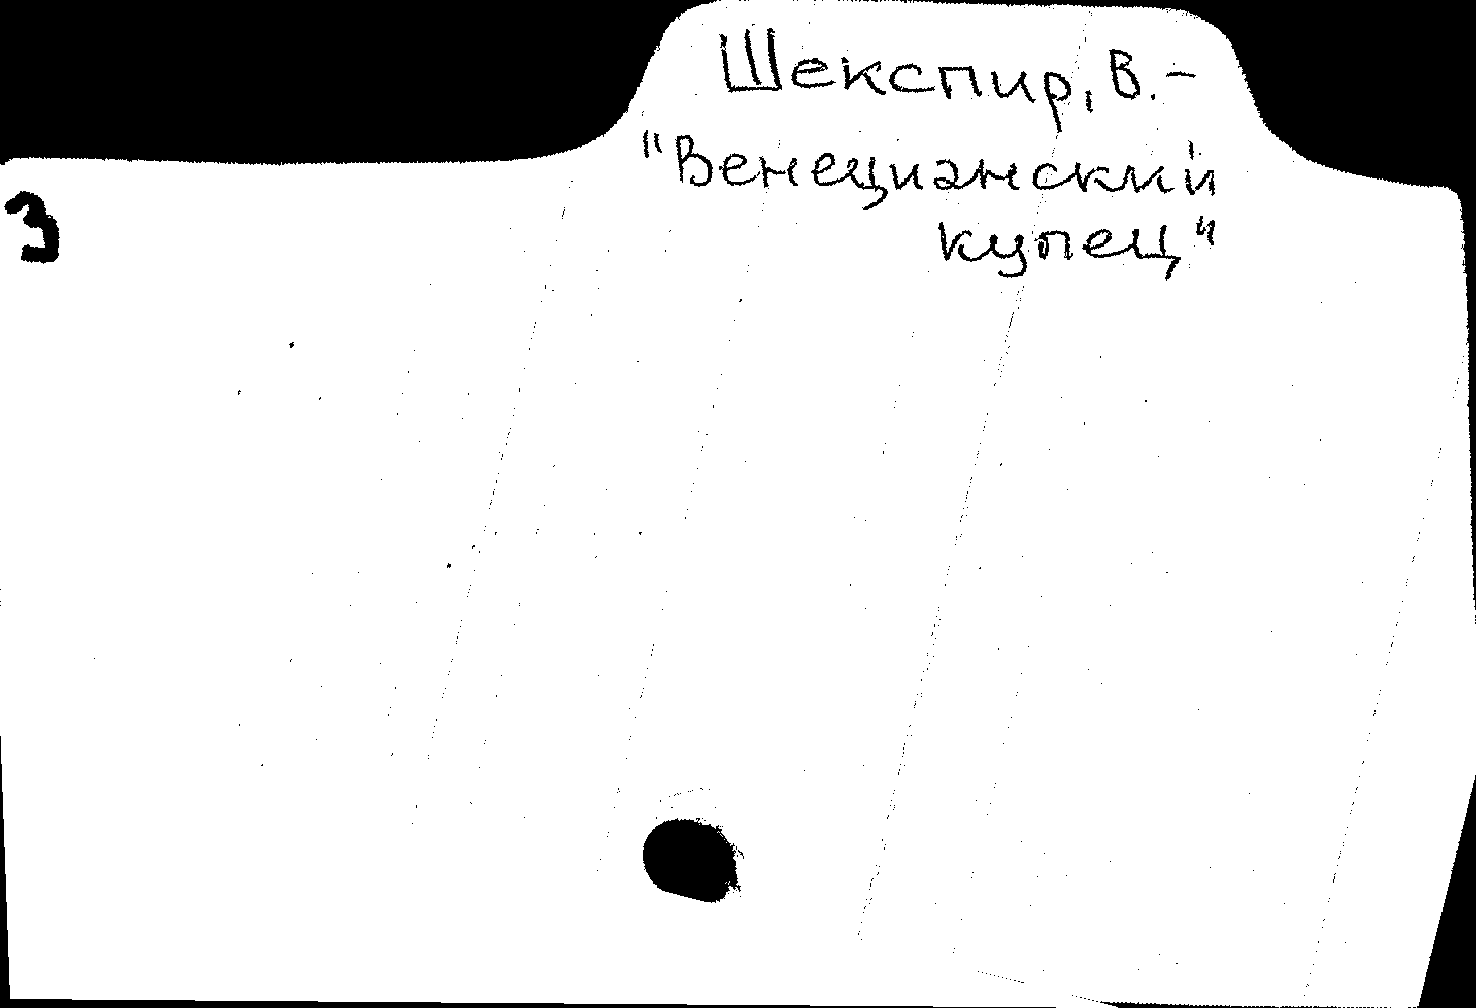 Шекспир, В. –
"Венецианский
купец"
3